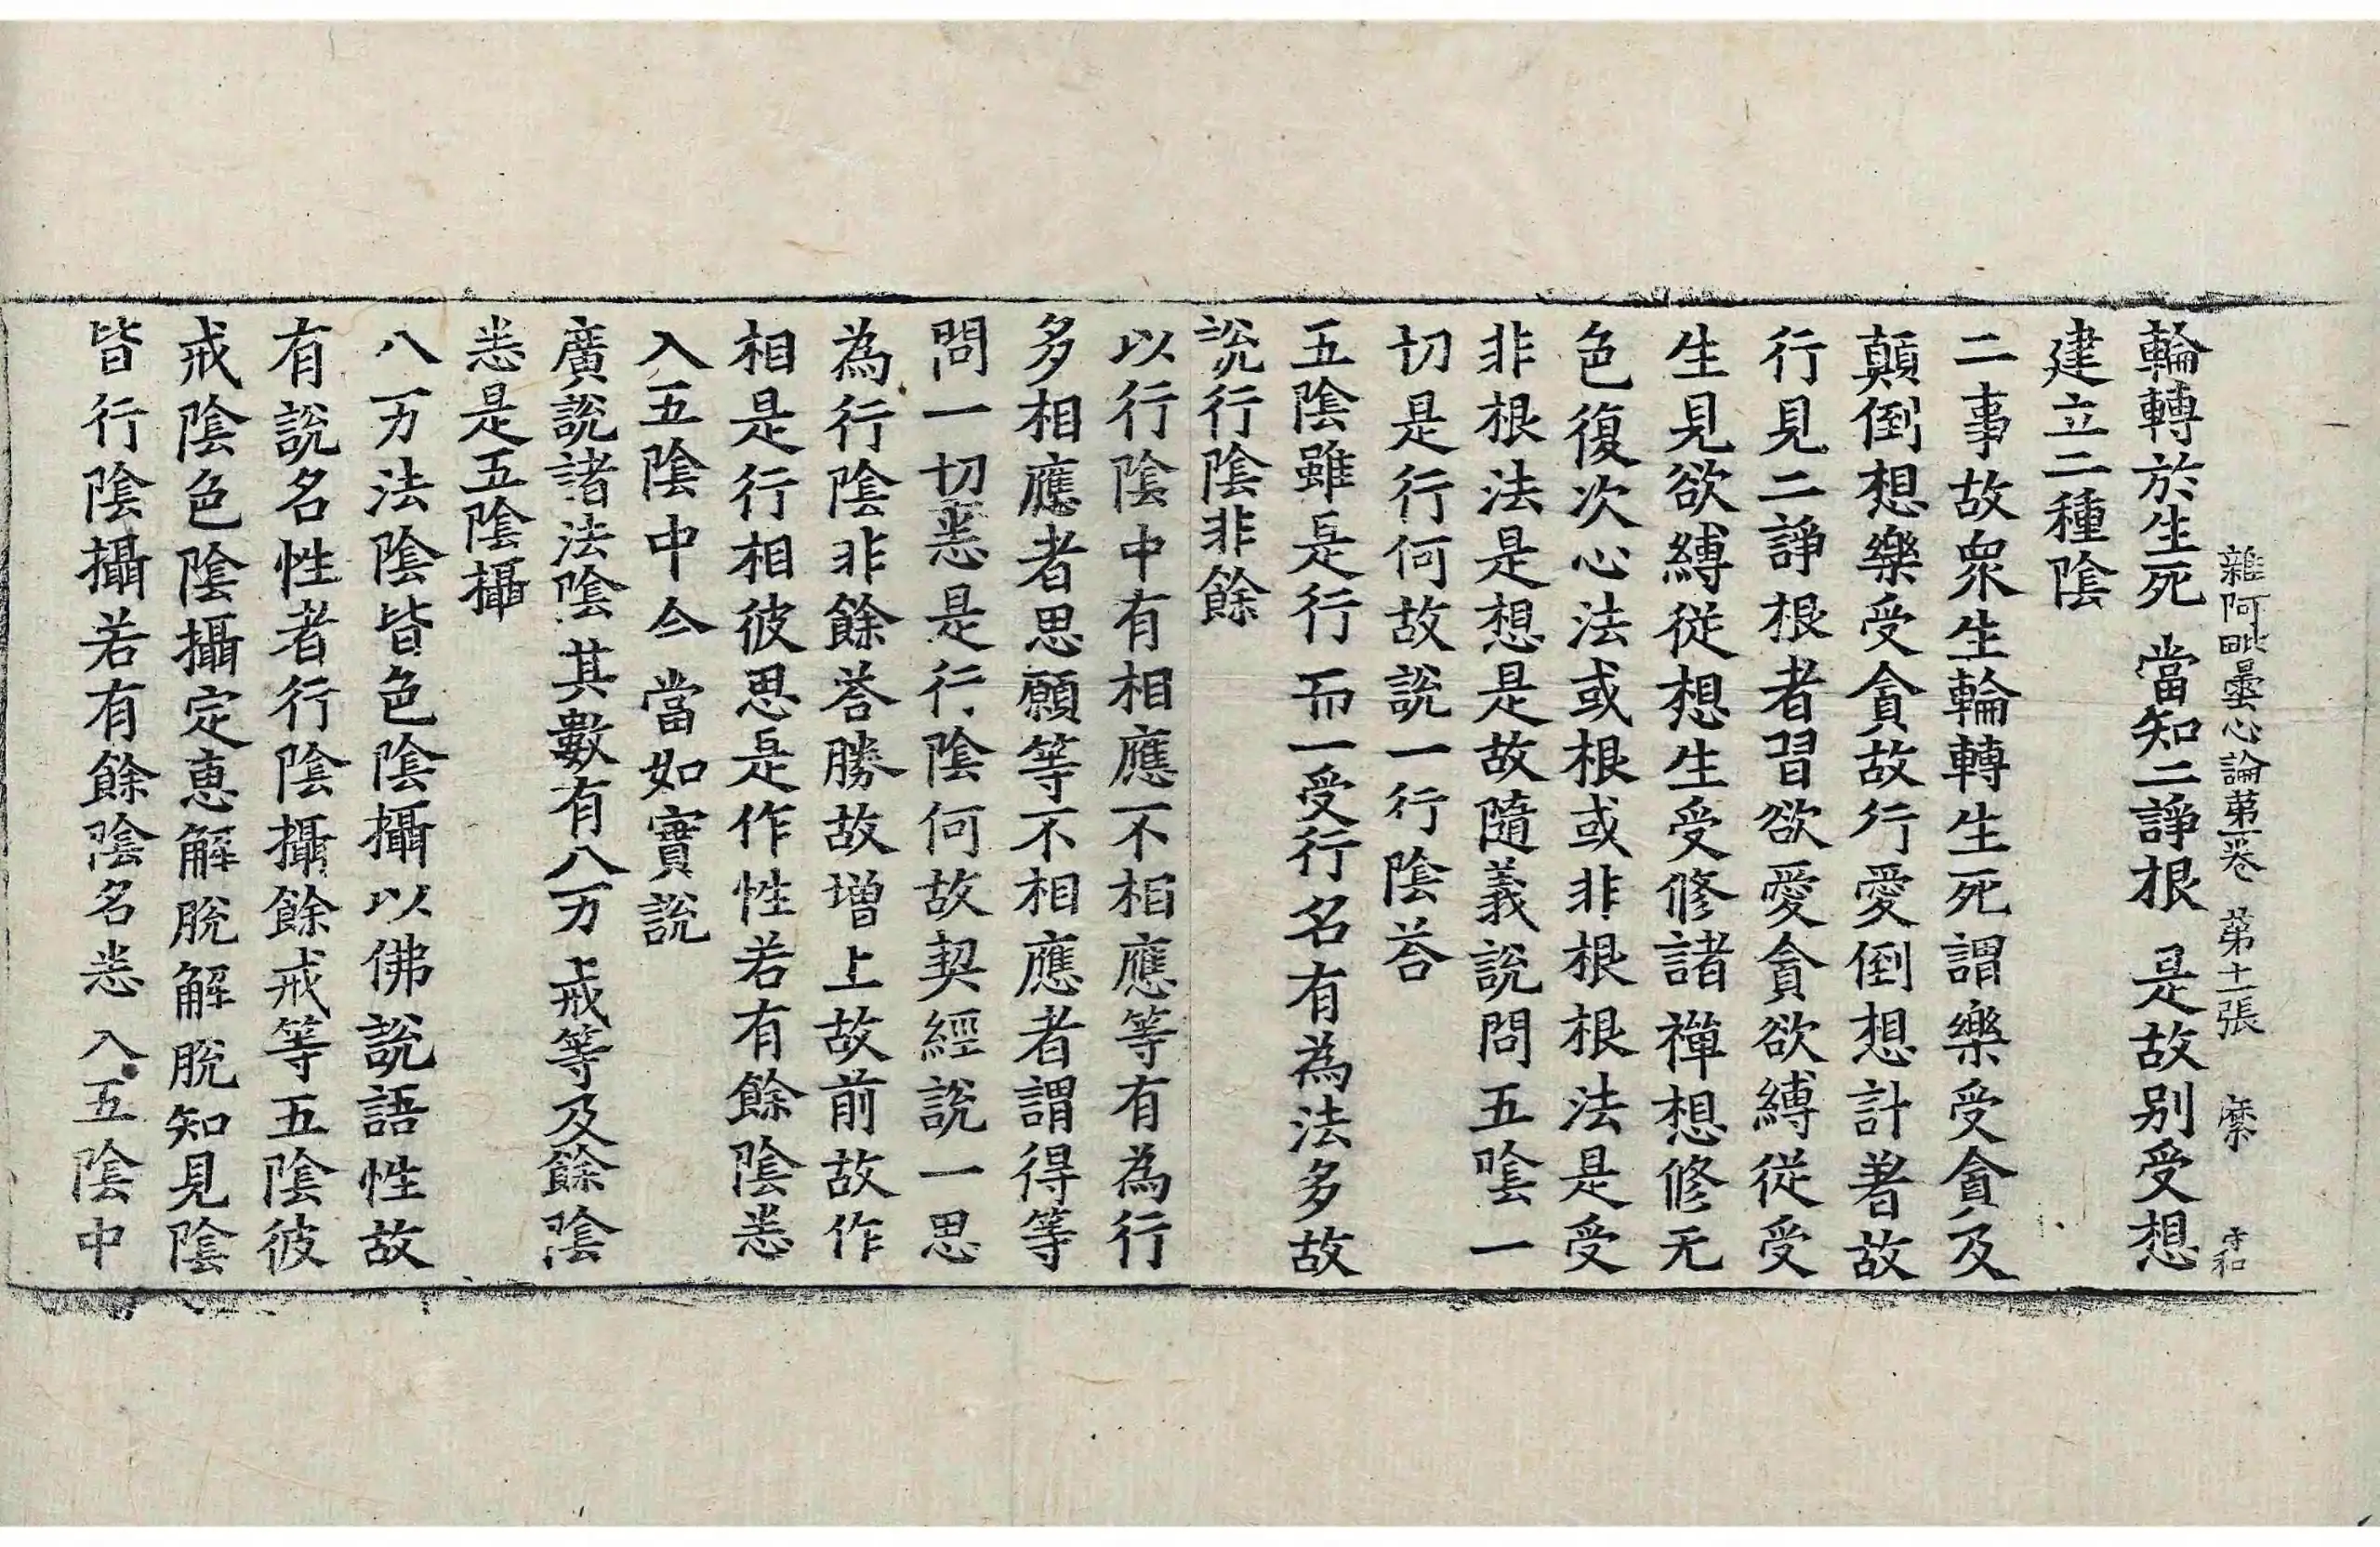 雜阿毗曇心論第一卷 第十一張 縻 守和
輪轉於生死 當知二諍根 是故别受想
建立二種陰
二事故衆生輪轉生死謂樂受貪及
顛倒想樂受貪故行愛倒想計著故
行見二諍根者習欲愛貪欲縛從受
生見欲縛從想生受修諸禪想修无
色復次心法或根或非根根法是受
非根法是想是故隨義說問五陰一
切是行何故說一行陰荅
五陰雖是行 而一受行名 有為法多故
說行陰非餘
以行陰中有相應不相應等有為行
多相應者思願等不相應者謂得等
問一切悉是行陰何故契經說一思
為行陰非餘荅勝故增上故前故作
相是行相彼思是作性若有餘陰悉
入五陰中今當如實說
廣說諸法陰 其數有八万 戒等及餘陰
悉是五陰攝
八万法陰皆色陰攝以佛說語性故
有說名性者行陰攝餘戒等五陰彼
戒陰色陰攝定惠解脫解脫知見陰
皆行陰攝若有餘陰名悉入五陰中